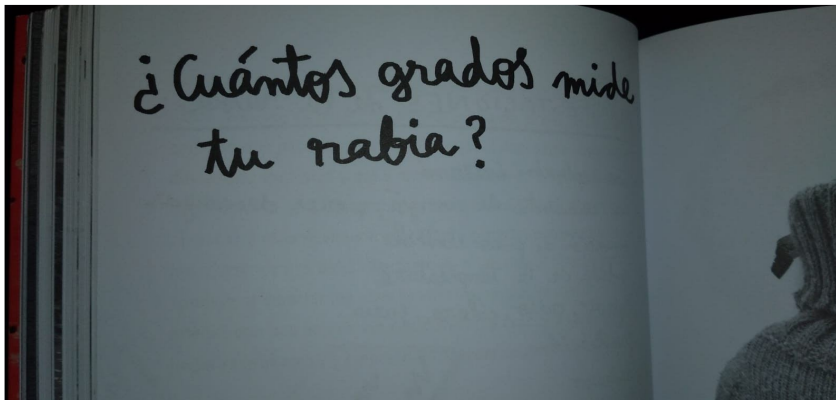 ¿Cuántos grados mide
tu rabia?